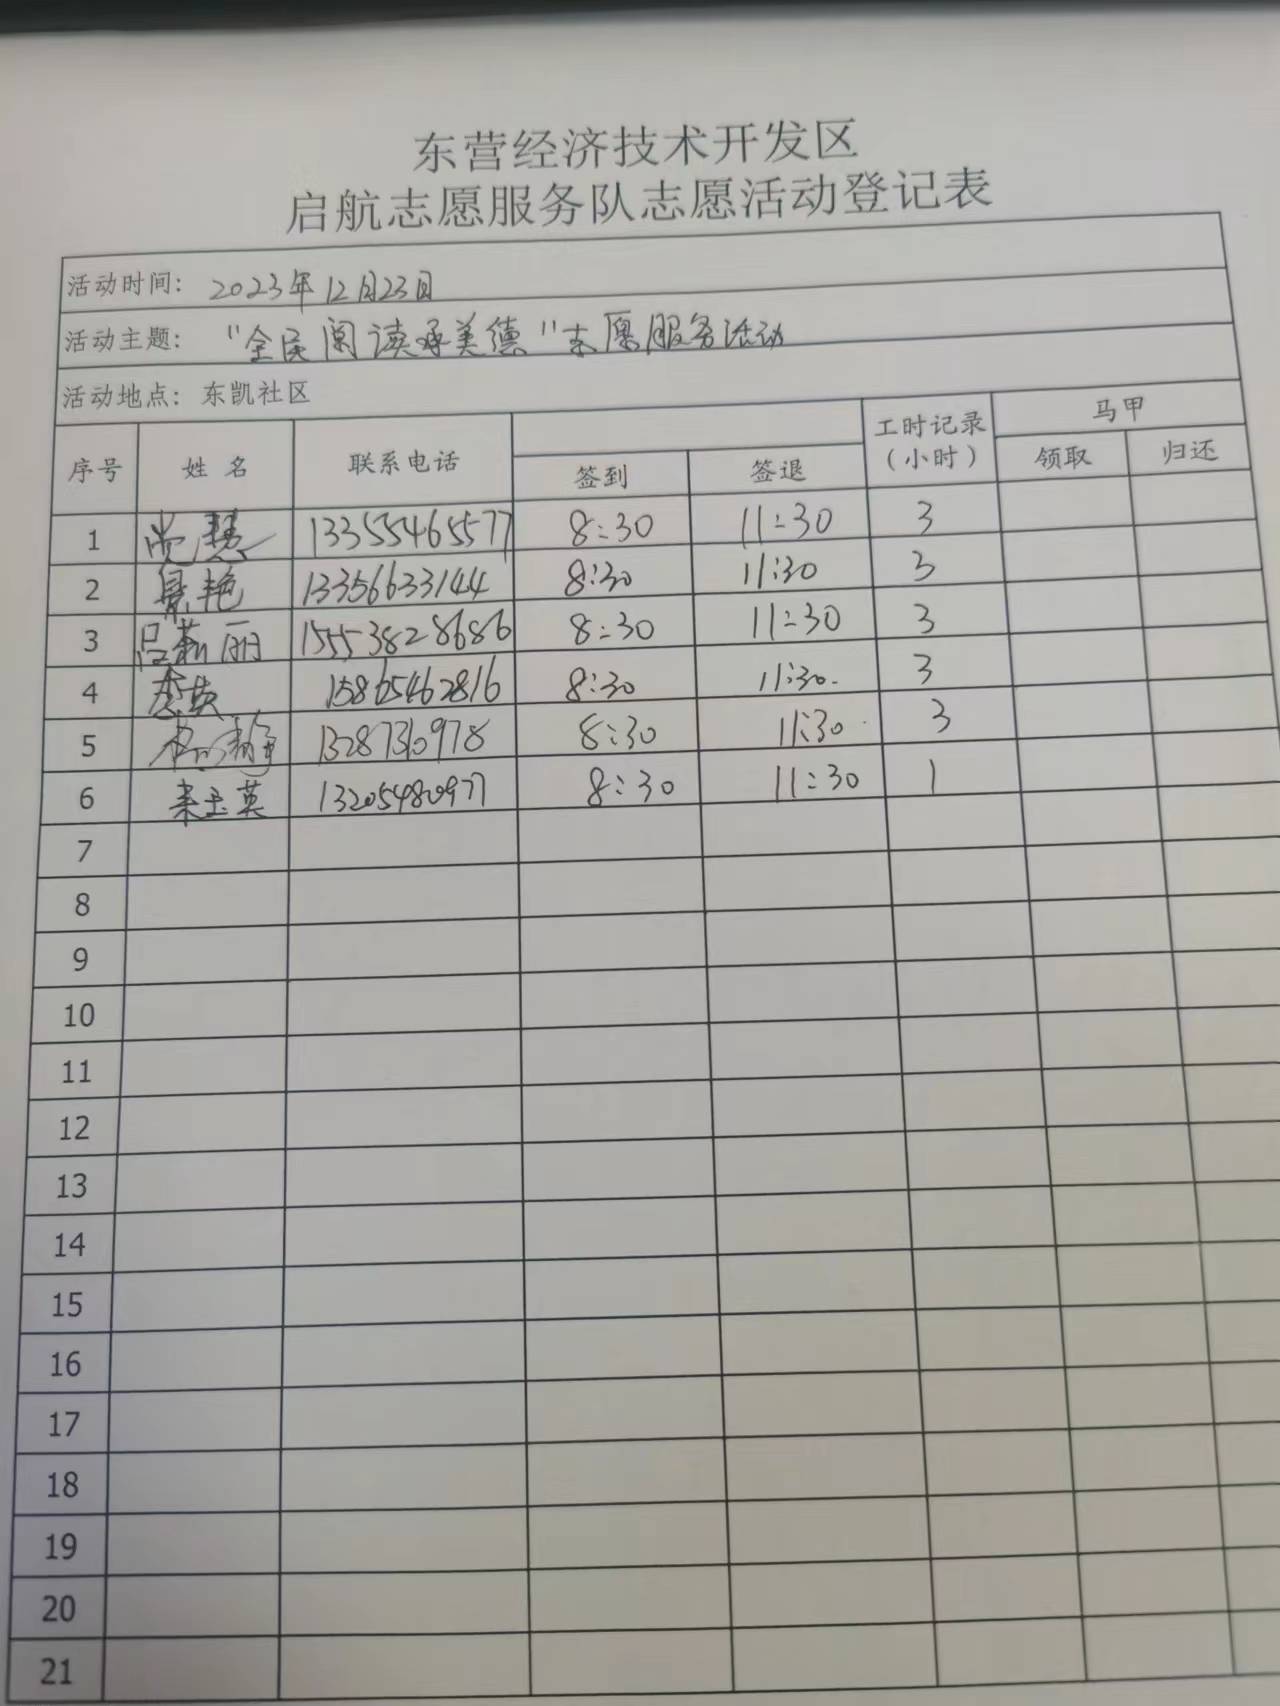 东营经济技术开发区
启航志愿服务队志愿活动登记表
活动时间: 2023年12月23日
活动主题: "全民阅读承美德"志愿服务活动
活动地点: 东凯社区
序号 姓名 联系电话 签到 签退 工时记录（小时） 马甲 领取 归还
1 尚慧 8:30 11:30 3
2 艳 13356633144 8:30 11:30 3
3 吕新丽 15553828686 8:30 11:30 3
4 李英 15865462816 8:30 11:30. 3
5 静 8:30 11:30 3
6 玉英 13205480977 8:30 11:30 1
7
8
9
10
11
12
13
14
15
16
17
18
19
20
21